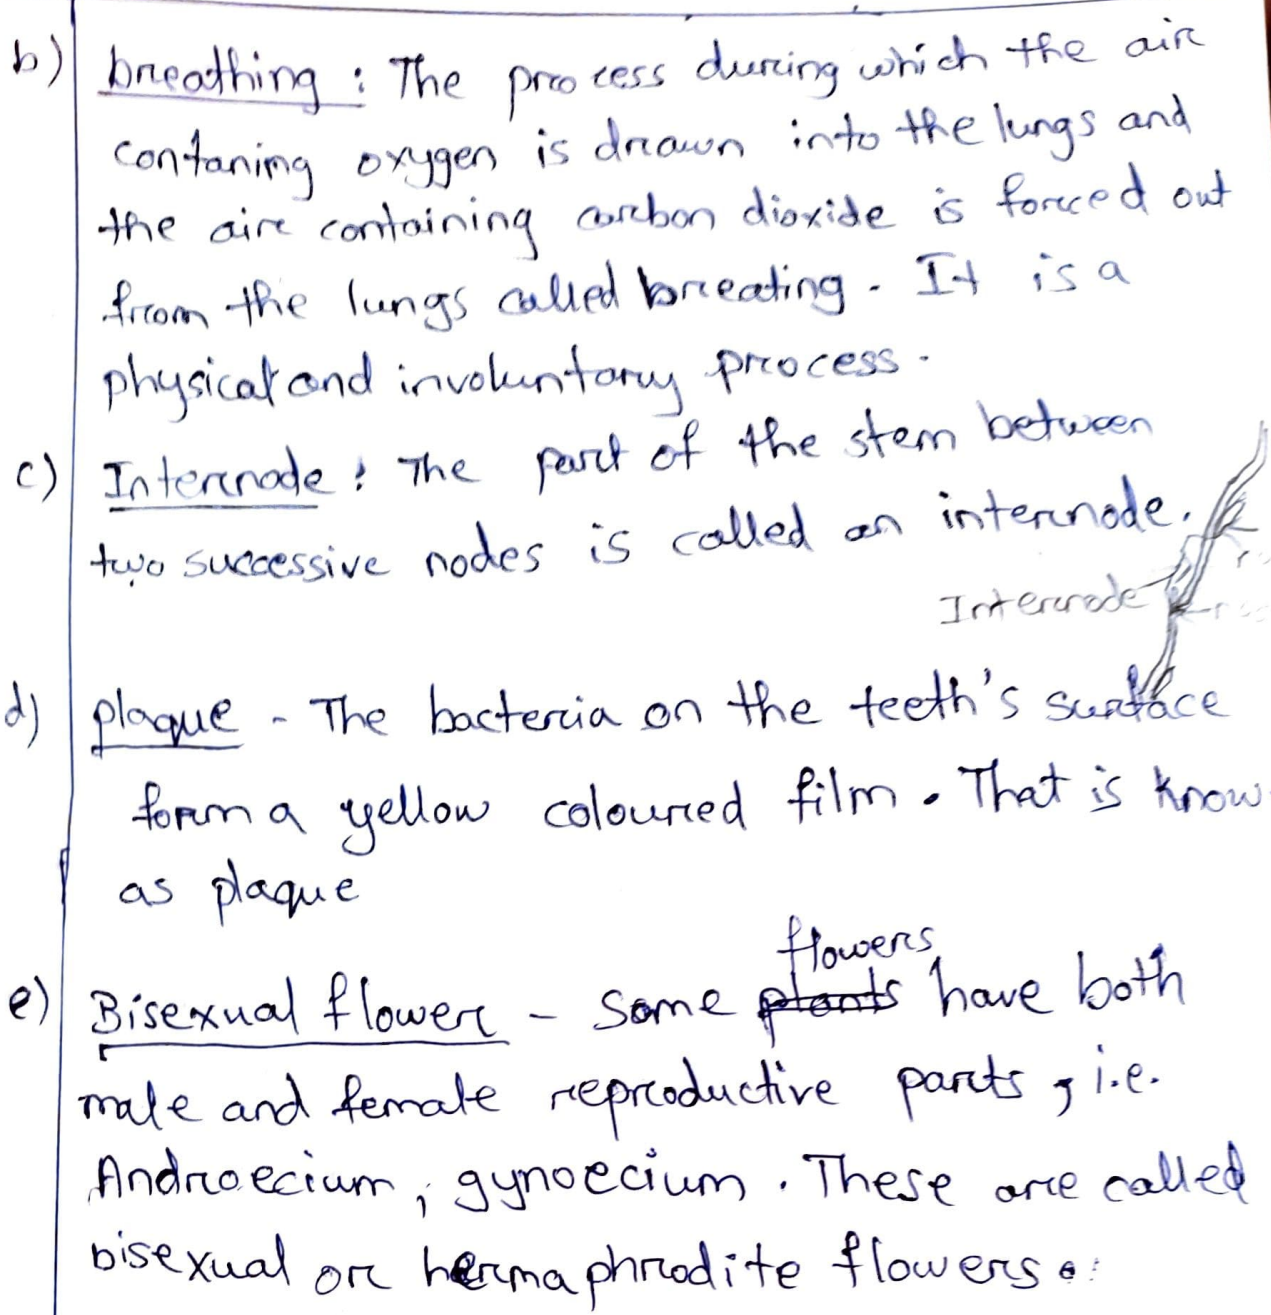 b) breathing : The process during which the air
contaning oxygen is drawn into the lungs and
the air containing carbon dioxide is forced out
from the lungs called breating. It is a
physical and involuntary process.
c) Internode : The part of the stem between
two successive nodes is called an internode.
Internode
d) plaque - The bacteria on the teeth's surface
form a yellow coloured film. That is know
as plaque
flowers
e) Bisexual flower - Some plants have both
male and female reproductive parts, i.e.
Androecium, gynoecium. These are called
bisexual or hermaphrodite flowers.